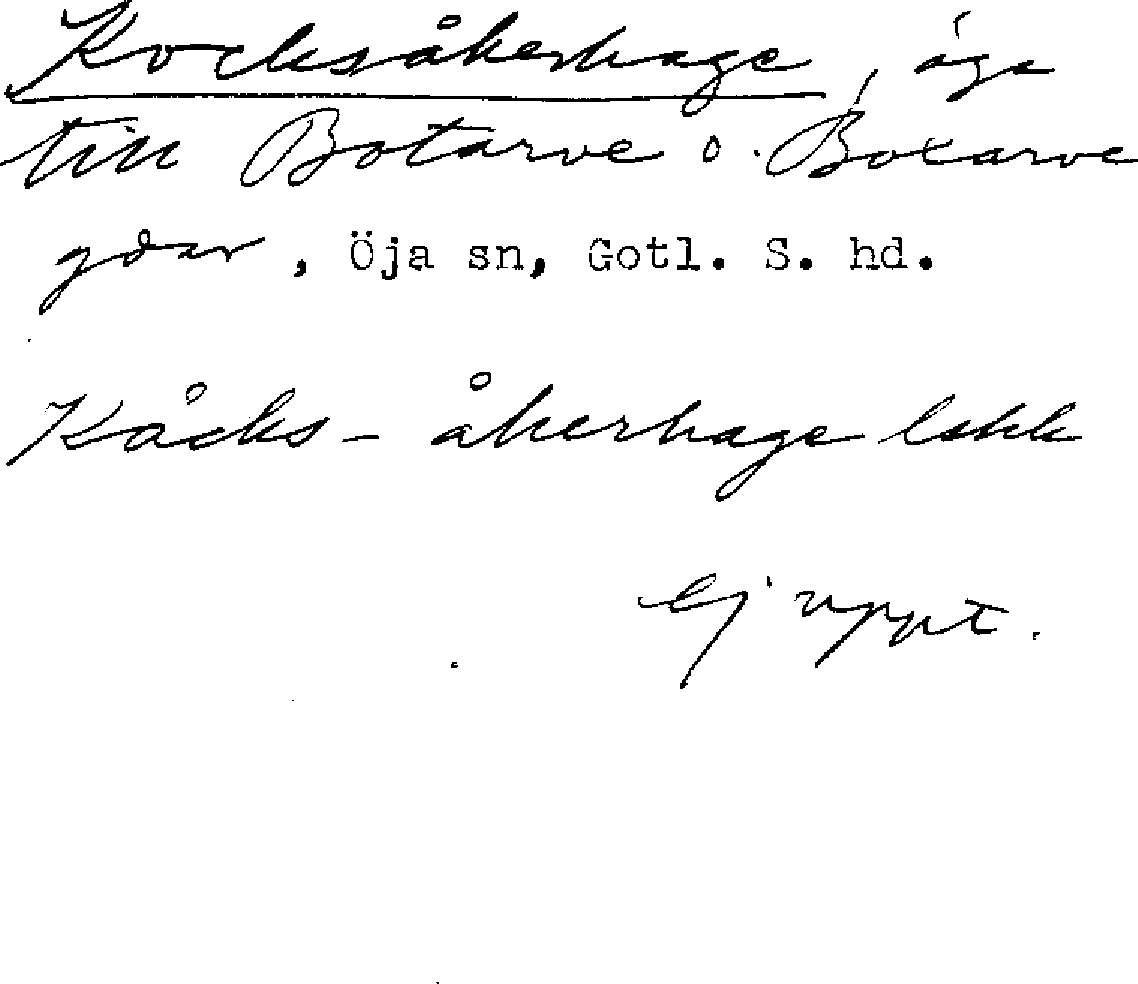 Kocksåkerhage, äga
till Botarve o. Boxarve
gdar, Öja sn, Gotl. S. hd.
Kåcks - åkerhage lskk
ej uppt.